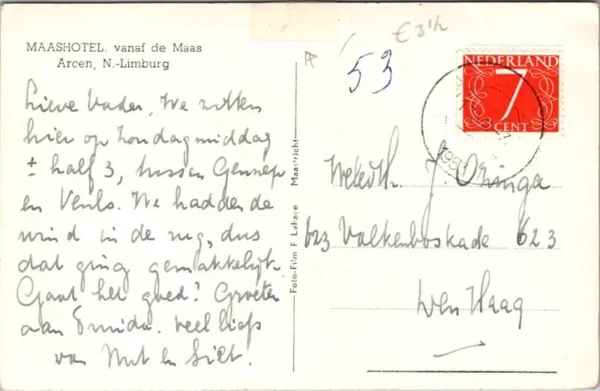 MAASHOTEL, vanaf de Maas
Arcen, N.-Limburg
Lieve Vader, We zitten
hier op Zondagmiddag
± half 3, tussen Gennep
en Venlo. We hadden de
wind in de rug, dus
dat ging gemakkelijk.
Gaat het goed? Groeten
aan Truida. veel liefs
van Nut en Siet.
Foto-Film F Lahaye Maastricht
€ 3½
53
NEDERLAND
7
CENT
Weledh. J. Oringa
623 Valkenboskade 623
Den Haag